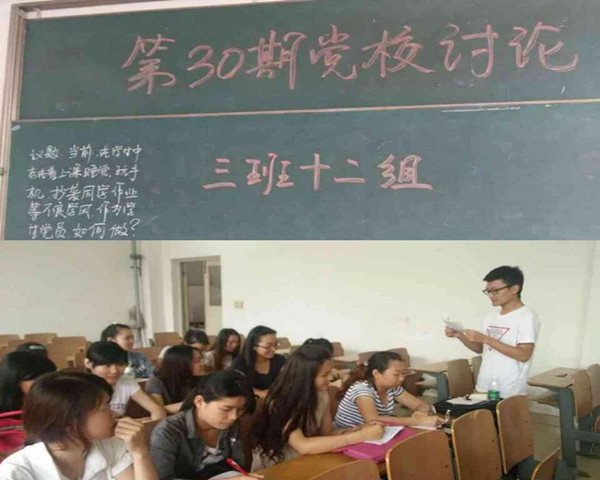 第30期党校讨论
三班十二组
议题:当前,在学生中
存在着上课睡觉,玩手
机,抄袭同学作业
等不良学风,作为学
生党员,如何做?